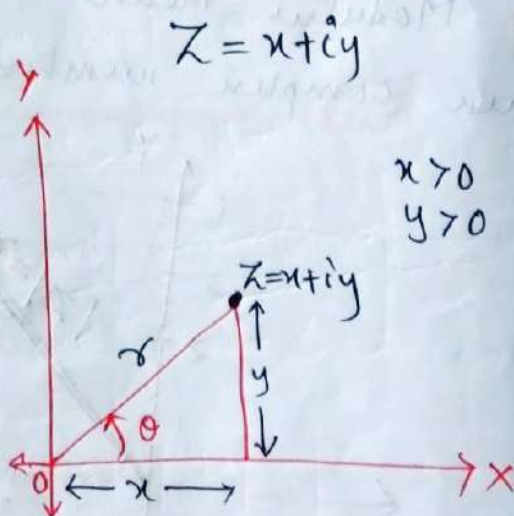 Z = x+iy
Y
x>0
y>0
Z=x+iy
r
y
θ
O
x
X